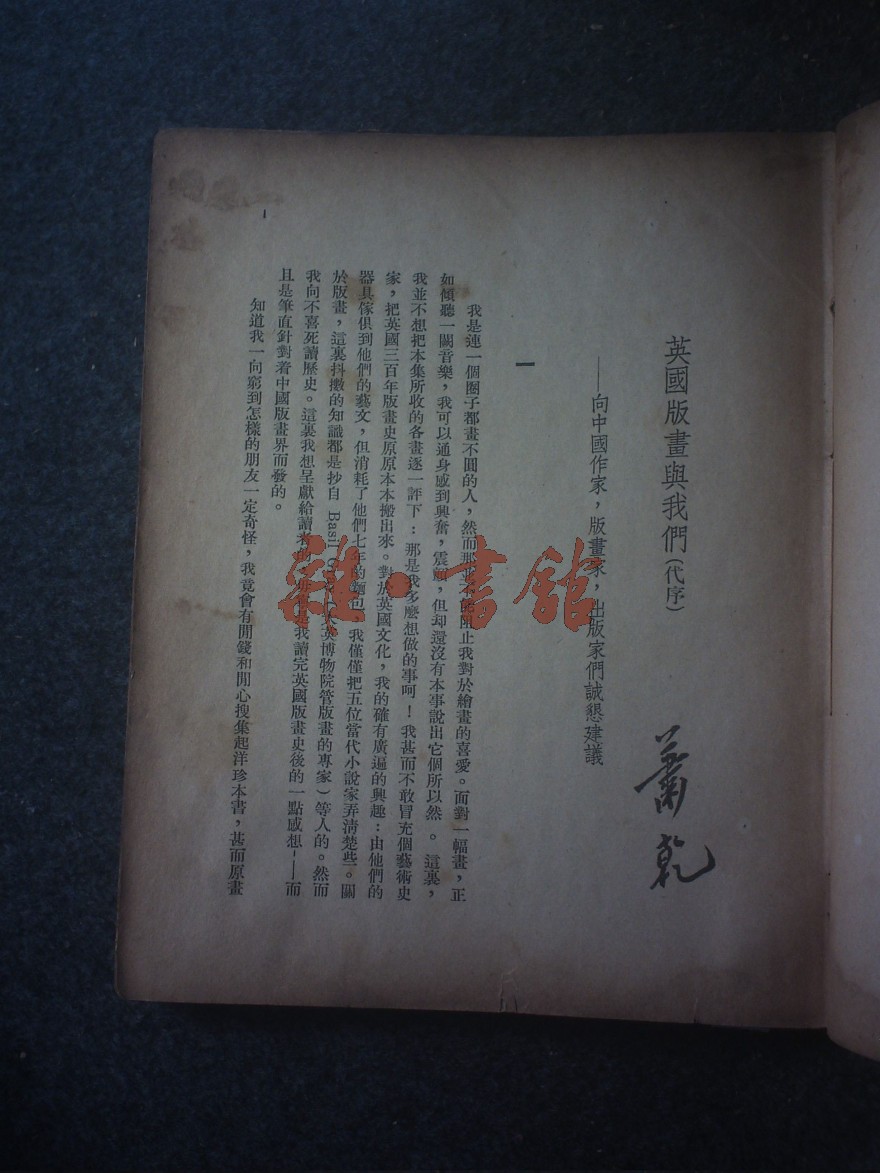 英國版畫與我們(代序)
——向中國作家,版畫家,出版家們誠懇建議
蕭乾
一
我是連一個圈子都畫不圓的人,然而那並不能阻止我對於繪畫的喜愛。面對一幅畫,正
如傾聽一闋音樂,我可以通身感到興奮,震顫,但却還沒有本事說出它個所以然。這裏,
我並不想把本集所收的各畫逐一評下:那是我多麽想做的事呵!我甚而不敢冒充個藝術史
家,把英國三百年版畫史原原本本搬出來。對於英國文化,我的確有廣遍的興趣:由他們的
器具傢俱到他們的藝文,但消耗了他們七年的麵包,我僅僅把五位當代小說家弄淸楚些。關
於版畫,這裏抖擻的知識都是抄自 Basil 英博物院管版畫的專家)等人的。然而
我向不喜死讀歷史。這裏我想呈獻給讀者的,是我讀完英國版畫史後的一點感想——而
且是筆直針對着中國版畫界而發的。
知道我一向窮到怎樣的朋友一定奇怪,我竟會有閒錢和閒心搜集起洋珍本書,甚而原畫
1
雜·書館